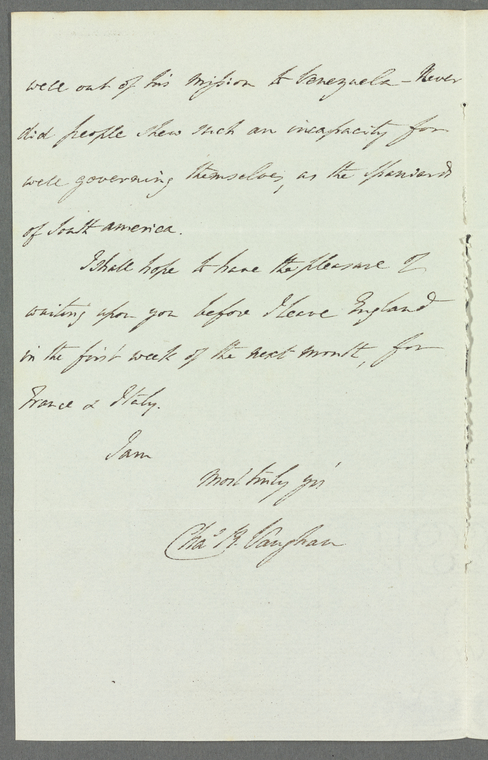 well out of his mission to Venezuela – Never
did people shew such an incapacity for
well governing themselves, as the Spaniards
of South America.
I shall hope to have the pleasure of
waiting upon you before I leave England
in the first week of the next month, for
France & Italy.
I am
most truly yrs
Chas R. Vaughan